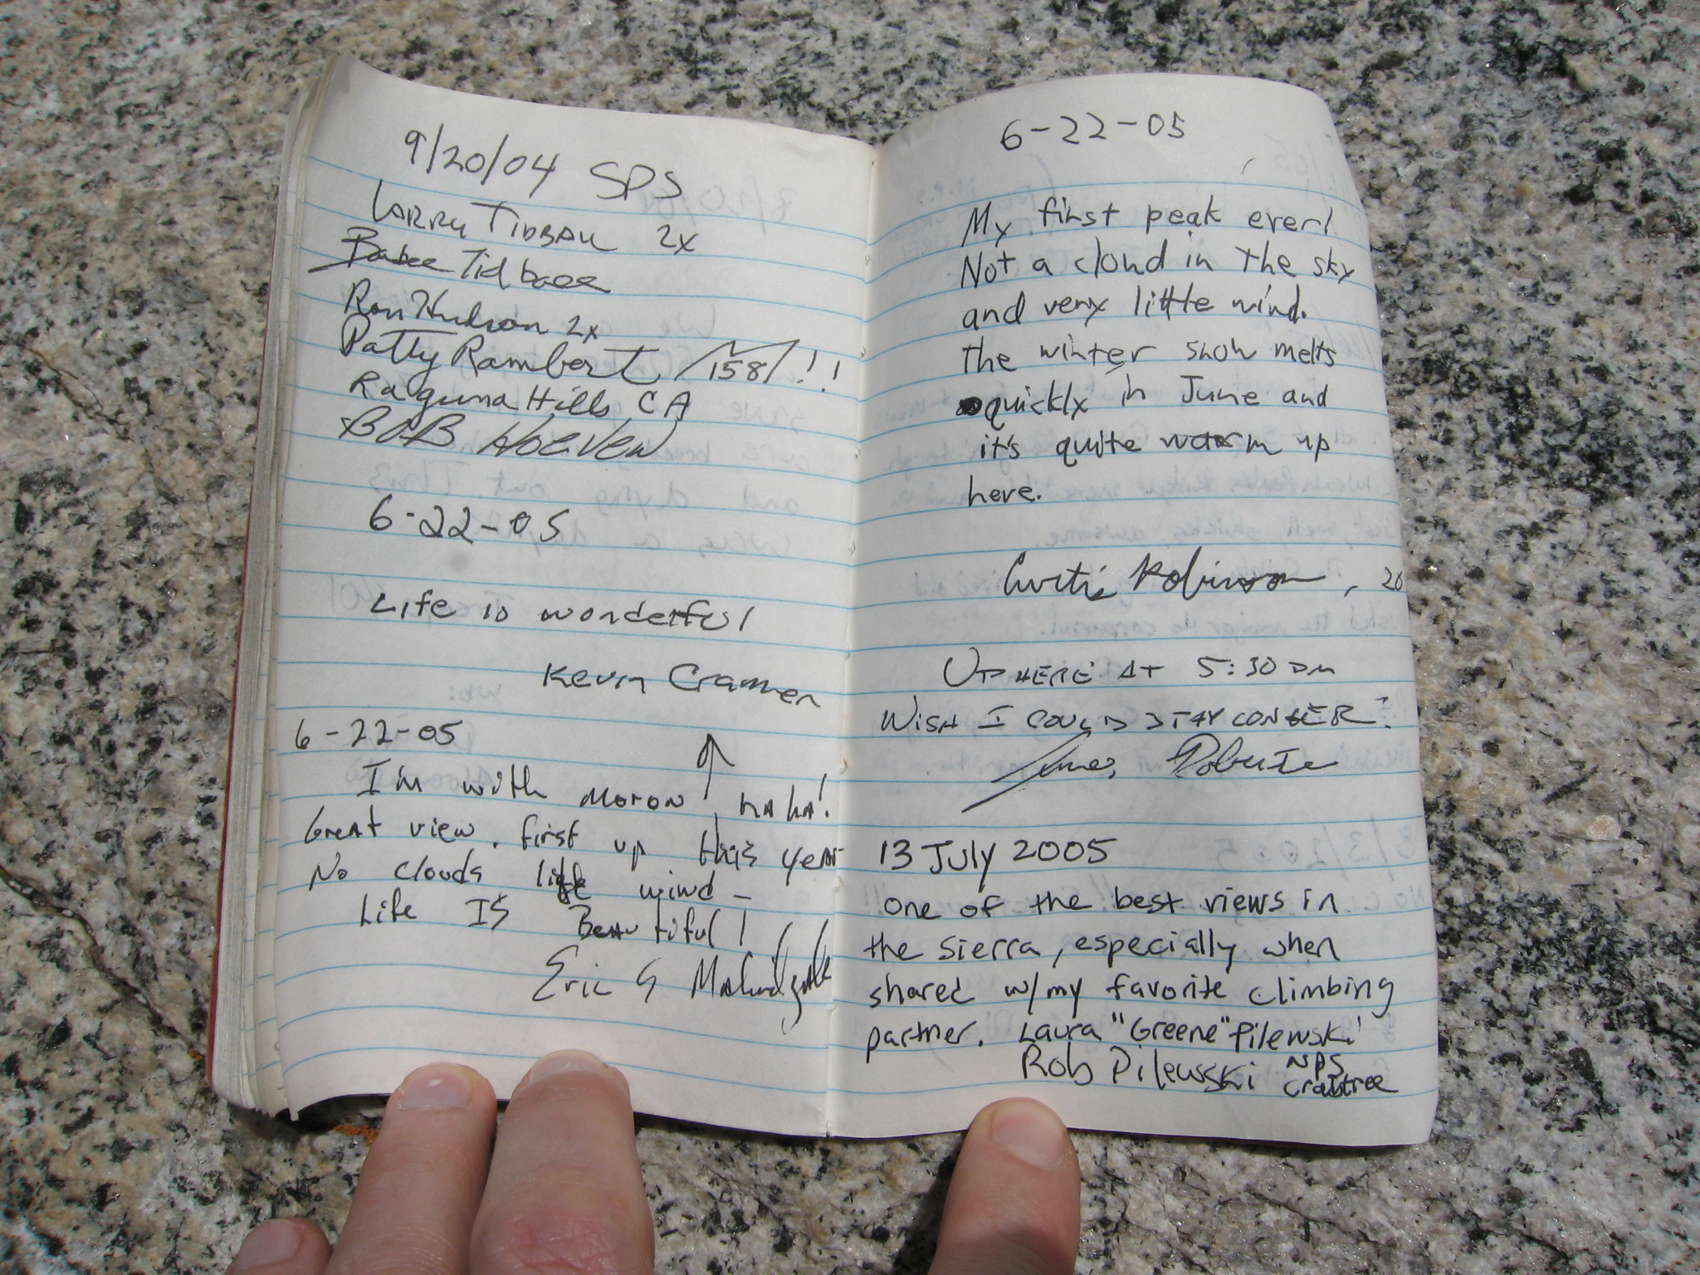 9/20/04 SPS
Larry Tidball 2x
Barbee Tidball
Ron Hudson 2x
Patty Rambert /158/!!
Laguna Hills CA
BOB Hoeven
6-22-05
Life is wonderful
Kevin Cramen
6-22-05
I'm with moron ↑ haha!
Great view. First up this year
No clouds little wind –
Life Is Beautiful!
Eric G
6-22-05
My first peak ever!
Not a cloud in the sky
and very little wind.
The winter snow melts
quickly in June and
it's quite warm up
here.
Curtis Robinson, 20
UP HERE AT 5:30 PM
WISH I COULD STAY LONGER!
James Roberts
13 July 2005
one of the best views in
the Sierra, especially when
shared w/my favorite climbing
partner. Laura "Greene" Pilewski!
Rob Pilewski NPS
Crabtree